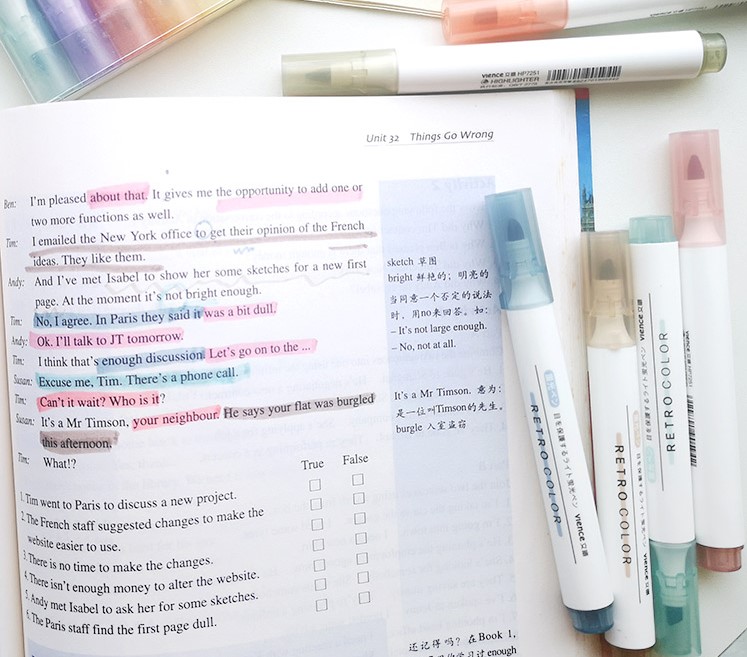 vience 文德 HP7251
HIGHLIGHTER
Unit 32 Things Go Wrong
Ben: I'm pleased about that. It gives me the opportunity to add one or
two more functions as well.
Tim: I emailed the New York office to get their opinion of the French
ideas. They like them.
Andy: And I've met Isabel to show her some sketches for a new first
page. At the moment it's not bright enough.
Tim: No, I agree. In Paris they said it was a bit dull.
Andy: Ok. I'll talk to JT tomorrow.
Tim: I think that's enough discussion. Let's go on to the ...
Susan: Excuse me, Tim. There's a phone call.
Tim: Can't it wait? Who is it?
Susan: It's a Mr Timson, your neighbour. He says your flat was burgled
this afternoon.
Tim: What!?
True False
1. Tim went to Paris to discuss a new project.
2. The French staff suggested changes to make the
website easier to use.
3. There is no time to make the changes.
4. There isn't enough money to alter the website.
5. Andy met Isabel to ask her for some sketches.
6. The Paris staff find the first page dull.
sketch 草图
bright 鲜艳的；明亮的
当同意一个否定的说法
时，用no来回答。如：
– It's not large enough.
– No, not at all.
It's a Mr Timson. 意为：
是一位叫Timson的先生。
burgle 入室盗窃
还记得吗？在Book 1,
enough
RETRO COLOR
目を保護するライト蛍光ペン vience
RETRO COLOR
目を保護するライト蛍光ペン vience
RETRO COLOR
目を保護するライト蛍光ペン